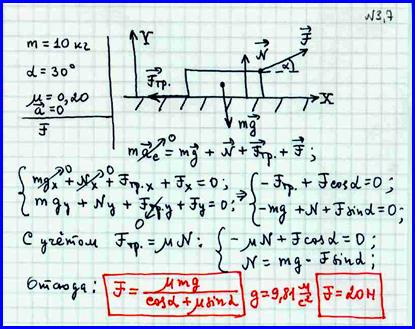 N3,7
m = 10 кг
α = 30°
μ = 0,20
a⃗ = 0
F
Y
N⃗
F⃗
α
F⃗тр.
X
mg⃗
ma⃗c = mg⃗ + N⃗ + F⃗тр. + F⃗ ;
0
{ mgx + Nx + Fтр.x + Fx = 0; ⇒ { -Fтр. + Fcosα = 0 ;
mgy + Ny + Fтр.y + Fy = 0; -mg + N + Fsinα = 0 ;
С учётом Fтр. = μN : { -μN + Fcosα = 0 ;
N = mg - Fsinα ;
Отсюда: F = μmg / (cosα + μsinα) g = 9,81 м/с² F = 20 Н